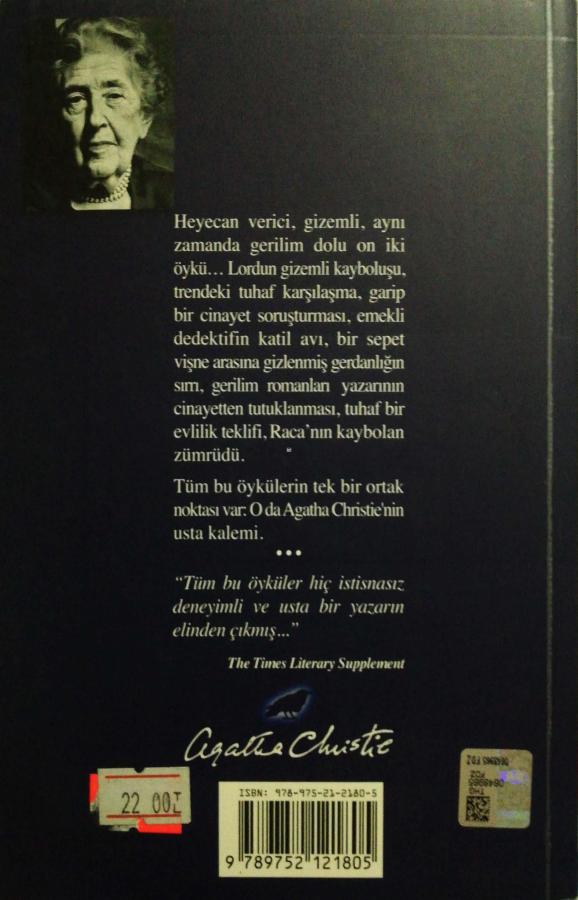 Heyecan verici, gizemli, aynı
zamanda gerilim dolu on iki
öykü... Lordun gizemli kayboluşu,
trendeki tuhaf karşılaşma, garip
bir cinayet soruşturması, emekli
dedektifin katil avı, bir sepet
vişne arasına gizlenmiş gerdanlığın
sırrı, gerilim romanları yazarının
cinayetten tutuklanması, tuhaf bir
evlilik teklifi, Raca'nın kaybolan
zümrüdü.
Tüm bu öykülerin tek bir ortak
noktası var: O da Agatha Christie'nin
usta kalemi.
•••
“Tüm bu öyküler hiç istisnasız
deneyimli ve usta bir yazarın
elinden çıkmış...”
The Times Literary Supplement
Agatha Christie
22 00
ISBN: 978-975-21-2180-5
9 789752 121805